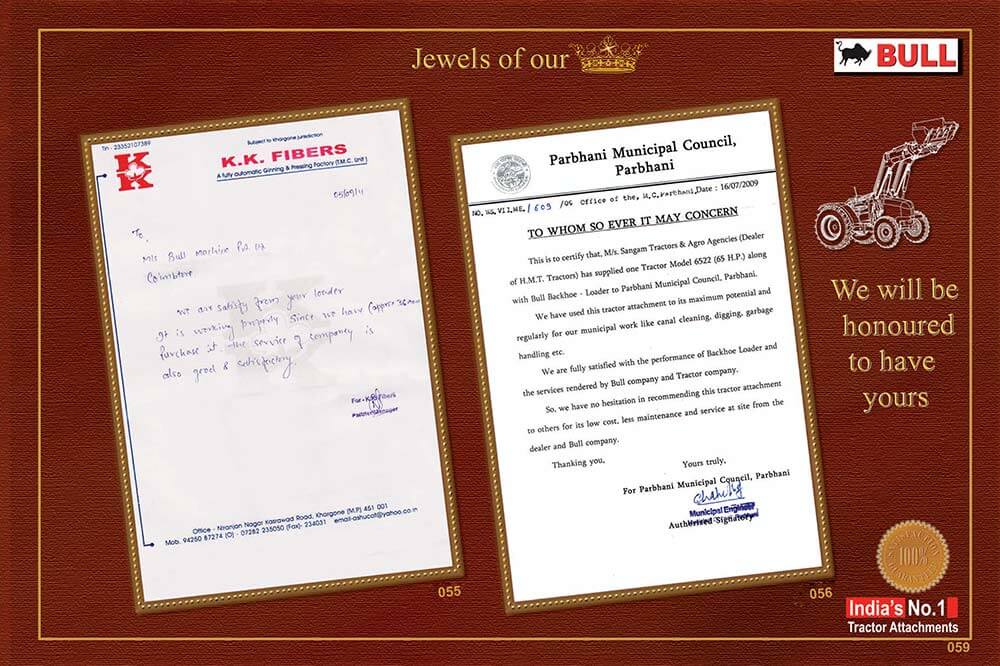 Jewels of our
BULL
Tin - 23352107389
Subject to Khargone Jurisdiction
K K
K.K. FIBERS
A fully automatic Ginning & Pressing Factory (T.M.C. Unit)
05/09/11
To,
M/s Bull Machine Pvt. Ltd
Coimbtore
we are satisfy from your loader
It is working properly since we have (approx 36
Purchase it. The service of company is
also good & satisfactory.
For - K.K. Fibers
Office - Niranjan Nagar Kasrawad Road, Khargone (M.P.) 451 001
Mob. 94250 87274 (O) - 07282 235050 (Fax)- 234031 email-ashucot@yahoo.co.in
055
Parbhani Municipal Council,
Parbhani
/609 /09 Office of the, M.C.Parbhani,Date : 16/07/2009
TO WHOM SO EVER IT MAY CONCERN
This is to certify that, M/s. Sangam Tractors & Agro Agencies (Dealer
of H.M.T. Tractors) has supplied one Tractor Model 6522 (65 H.P.) along
with Bull Backhoe - Loader to Parbhani Municipal Council, Parbhani.
We have used this tractor attachment to its maximum potential and
regularly for our municipal work like canal cleaning, digging, garbage
handling etc.
We are fully satisfied with the performance of Backhoe Loader and
the services rendered by Bull company and Tractor company.
So, we have no hesitation in recommending this tractor attachment
to others for its low cost, less maintenance and service at site from the
dealer and Bull company.
Thanking you,
Yours truly,
For Parbhani Municipal Council, Parbhani
Municipal Engineer
Authorised Signatory
056
We will be
honoured
to have
yours
SATISFACTION
100%
GUARANTEE
India's No.1
Tractor Attachments
059